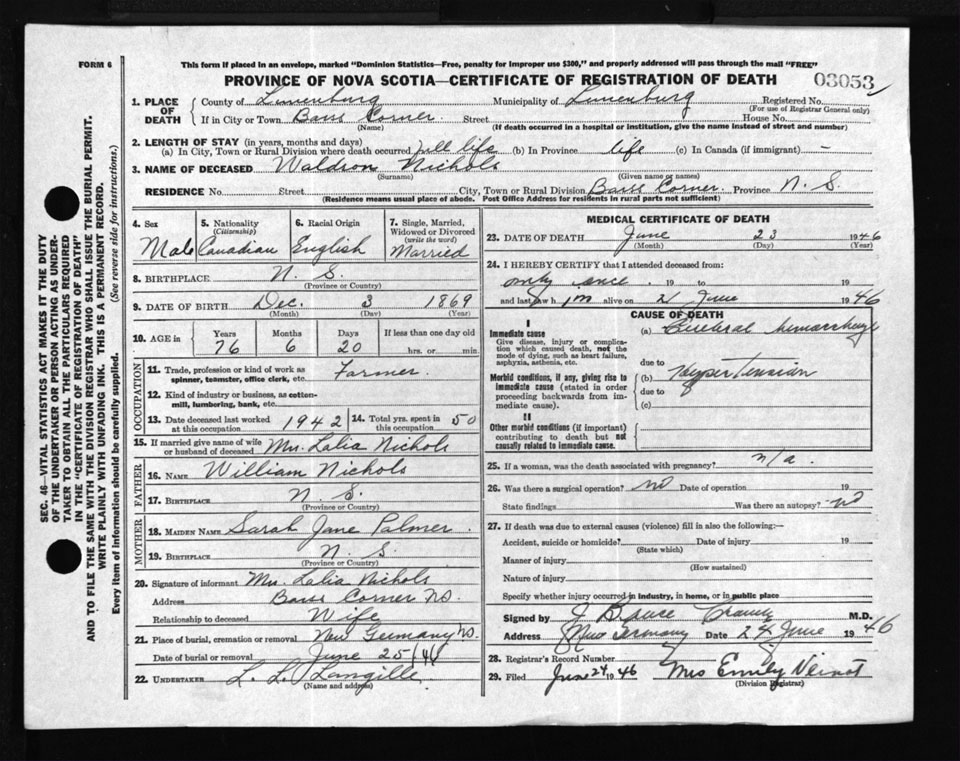 FORM 6
This form if placed in an envelope, marked "Dominion Statistics—Free, penalty for improper use $300," and properly addressed will pass through the mail "FREE"
PROVINCE OF NOVA SCOTIA—CERTIFICATE OF REGISTRATION OF DEATH 03053
1. PLACE OF DEATH County of Lunenburg Municipality of Lunenburg Registered No. (For use of Registrar General only)
If in City or Town Barss Corner Street House No.
(Name) (If death occurred in a hospital or institution, give the name instead of street and number)
2. LENGTH OF STAY (in years, months and days)
(a) In City, Town or Rural Division where death occurred full life (b) In Province life (c) In Canada (if immigrant) -
3. NAME OF DECEASED Waldron Nichols
(Surname) (Given name or names)
RESIDENCE No. Street City, Town or Rural Division Barss Corner. Province N. S.
(Residence means usual place of abode. Post Office Address for residents in rural parts not sufficient)
SEC. 46—VITAL STATISTICS ACT MAKES IT THE DUTY
OF THE UNDERTAKER OR PERSON ACTING AS UNDER-
TAKER TO OBTAIN ALL THE PARTICULARS REQUIRED
IN THE "CERTIFICATE OF REGISTRATION OF DEATH"
AND TO FILE THE SAME WITH THE DIVISION REGISTRAR WHO SHALL ISSUE THE BURIAL PERMIT.
WRITE PLAINLY WITH UNFADING INK. THIS IS A PERMANENT RECORD.
Every item of information should be carefully supplied. (See reverse side for instructions.)
4. Sex 5. Nationality (Citizenship) 6. Racial Origin 7. Single, Married, Widowed or Divorced (write the word)
Male Canadian English Married
8. BIRTHPLACE N. S.
(Province or Country)
9. DATE OF BIRTH Dec. 3 1869
(Month) (Day) (Year)
10. AGE in Years Months Days If less than one day old
76 6 20 hrs. or min.
OCCUPATION
11. Trade, profession or kind of work as spinner, teamster, office clerk, etc. Farmer.
12. Kind of industry or business, as cotton-mill, lumbering, bank, etc.
13. Date deceased last worked at this occupation 1942 14. Total yrs. spent in this occupation 50
15. If married give name of wife or husband of deceased Mrs. Lalia Nichols
FATHER
16. NAME William Nichols
17. BIRTHPLACE N. S.
(Province or Country)
MOTHER
18. MAIDEN NAME Sarah Jane Palmer.
19. BIRTHPLACE N. S.
(Province or Country)
20. Signature of informant Mrs. Lalia Nichols
Address Barss Corner NS.
Relationship to deceased Wife
21. Place of burial, cremation or removal New Germany NS.
Date of burial or removal June 25/46
22. UNDERTAKER L. L. Langille
(Name and address)
MEDICAL CERTIFICATE OF DEATH
23. DATE OF DEATH June 23 1946
(Month) (Day) (Year)
24. I HEREBY CERTIFY that I attended deceased from:
only once. 19 to 19
and last saw him alive on 21 June 1946
CAUSE OF DEATH
I
Immediate cause (a) Cerebral hemorrhage
Give disease, injury or complication which caused death, not the mode of dying, such as heart failure, asphyxia, asthenia, etc.
due to
Morbid conditions, if any, giving rise to immediate cause (stated in order proceeding backwards from immediate cause). (b) Hypertension
due to
(c)
II
Other morbid conditions (if important) contributing to death but not causally related to immediate cause.
25. If a woman, was the death associated with pregnancy? n/a.
26. Was there a surgical operation? no Date of operation 19
State findings Was there an autopsy? no
27. If death was due to external causes (violence) fill in also the following:—
Accident, suicide or homicide? Date of injury 19
(State which)
Manner of injury
(How sustained)
Nature of injury
Specify whether injury occurred in industry, in home, or in public place
Signed by J Bruce M.D.
Address New Germany Date 24 June 1946
28. Registrar's Record Number
29. Filed June 24 1946 Mrs Emily Veinot
(Division Registrar)